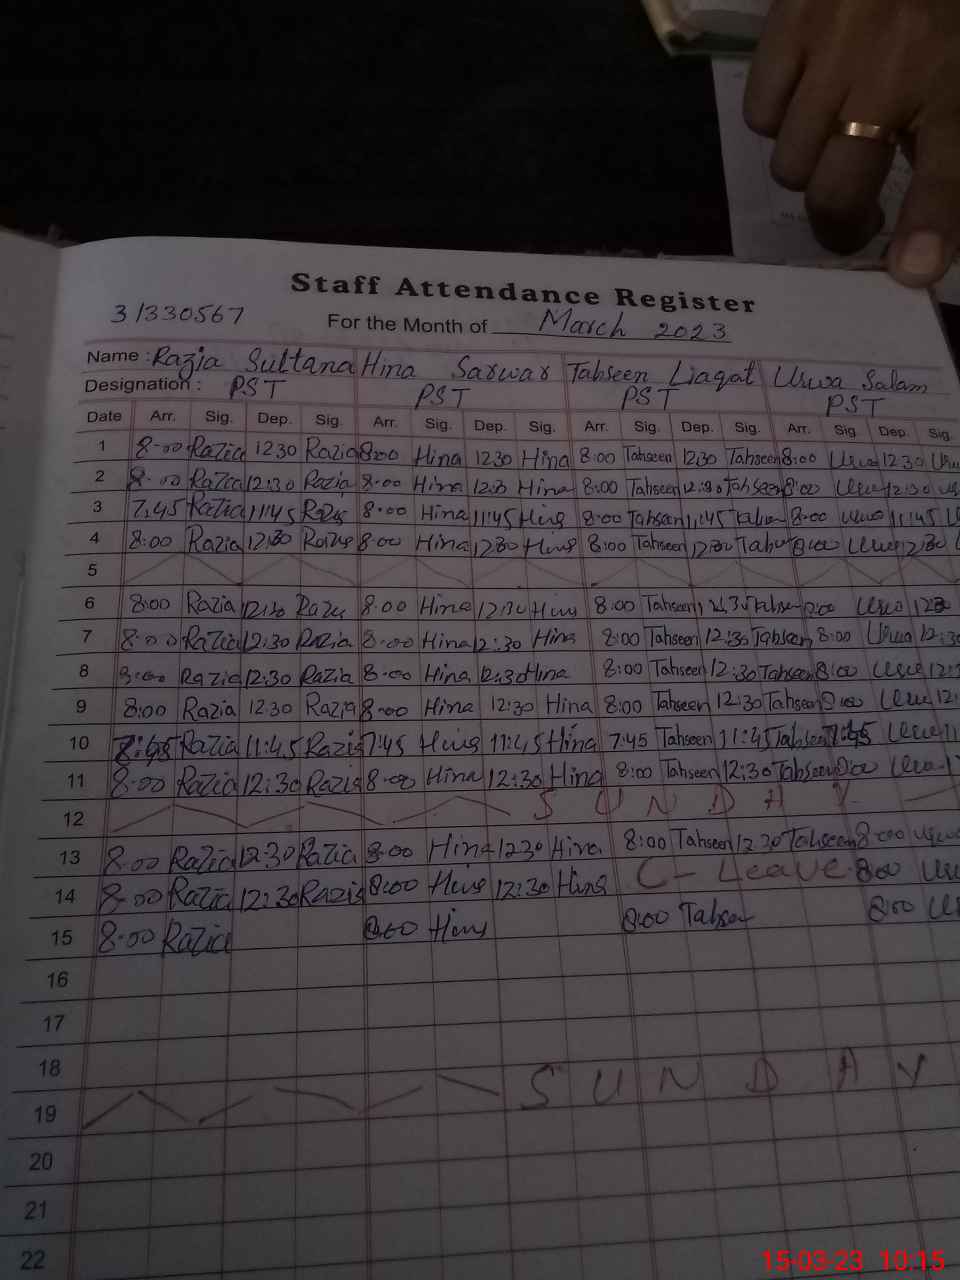 Staff Attendance Register
31330567
For the Month of March 2023
Name : Razia Sultana Hina Sarwar Tahseen Liaqat Urwa Salam
Designation : PST PST PST PST
Date Arr. Sig. Dep. Sig. Arr. Sig. Dep. Sig. Arr. Sig. Dep. Sig. Arr. Sig. Dep. Sig.
1 8-00 Razia 12 30 Razia 8:00 Hina 12 30 Hina 8:00 Tahseen 12:30 Tahseen 8:00 Urwa 12 30
2 8-00 Razia 12:30 Razia 8-00 Hina 12:30 Hina 8:00 Tahseen 12:30 Tahseen 8:00 Urwa 12:30
3 7.45 Razia 11:45 Razia 8-00 Hina 11:45 Hina 8:00 Tahseen 11:45 8-00 Urwa 11:45
4 8:00 Razia 12:30 Razia 8:00 Hina 12 30 Hina 8:00 Tahseen 12:30 8:00 Urwa 12:30
5
6 8:00 Razia 12:30 Razia 8.00 Hina 12:30 Hina 8:00 Tahseen 12:30 8:00 Urwa 12:30
7 8:00 Razia 12:30 Razia 8-00 Hina 12:30 Hina 8:00 Tahseen 12:30 Tahseen 8:00 Urwa 12:30
8 8:00 Razia 12:30 Razia 8-00 Hina 12:30 Hina 8:00 Tahseen 12:30 Tahseen 8:00 Urwa
9 8:00 Razia 12:30 Razia 8-00 Hina 12:30 Hina 8:00 Tahseen 12:30 Tahseen 8:00 Urwa
10 7:45 Razia 11:45 Razia 7:45 Hina 11:45 Hina 7:45 Tahseen 11:45 Tahseen 7:45 Urwa
11 8:00 Razia 12:30 Razia 8-00 Hina 12:30 Hina 8:00 Tahseen 12:30 Tahseen 8:00 Urwa
12 S U N D A Y
13 8:00 Razia 12:30 Razia 8-00 Hina 12 30 Hina 8:00 Tahseen 12 30 Tahseen 8:00 Urwa
14 8-00 Razia 12:30 Razia 8:00 Hina 12:30 Hina C- Leave 8:00
15 8-00 Razia 8:00 Hina 8:00 Tahseen 8:00
16
17
18
19 S U N D A Y
20
21
22
15-03-23 10:15